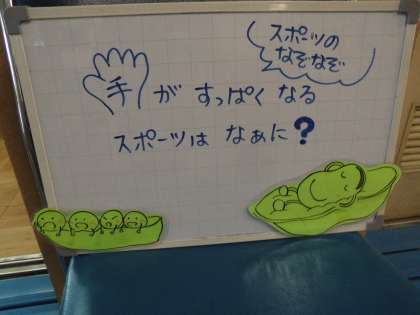 スポーツの
なぞなぞ
手がすっぱくなる
スポーツはなぁに?